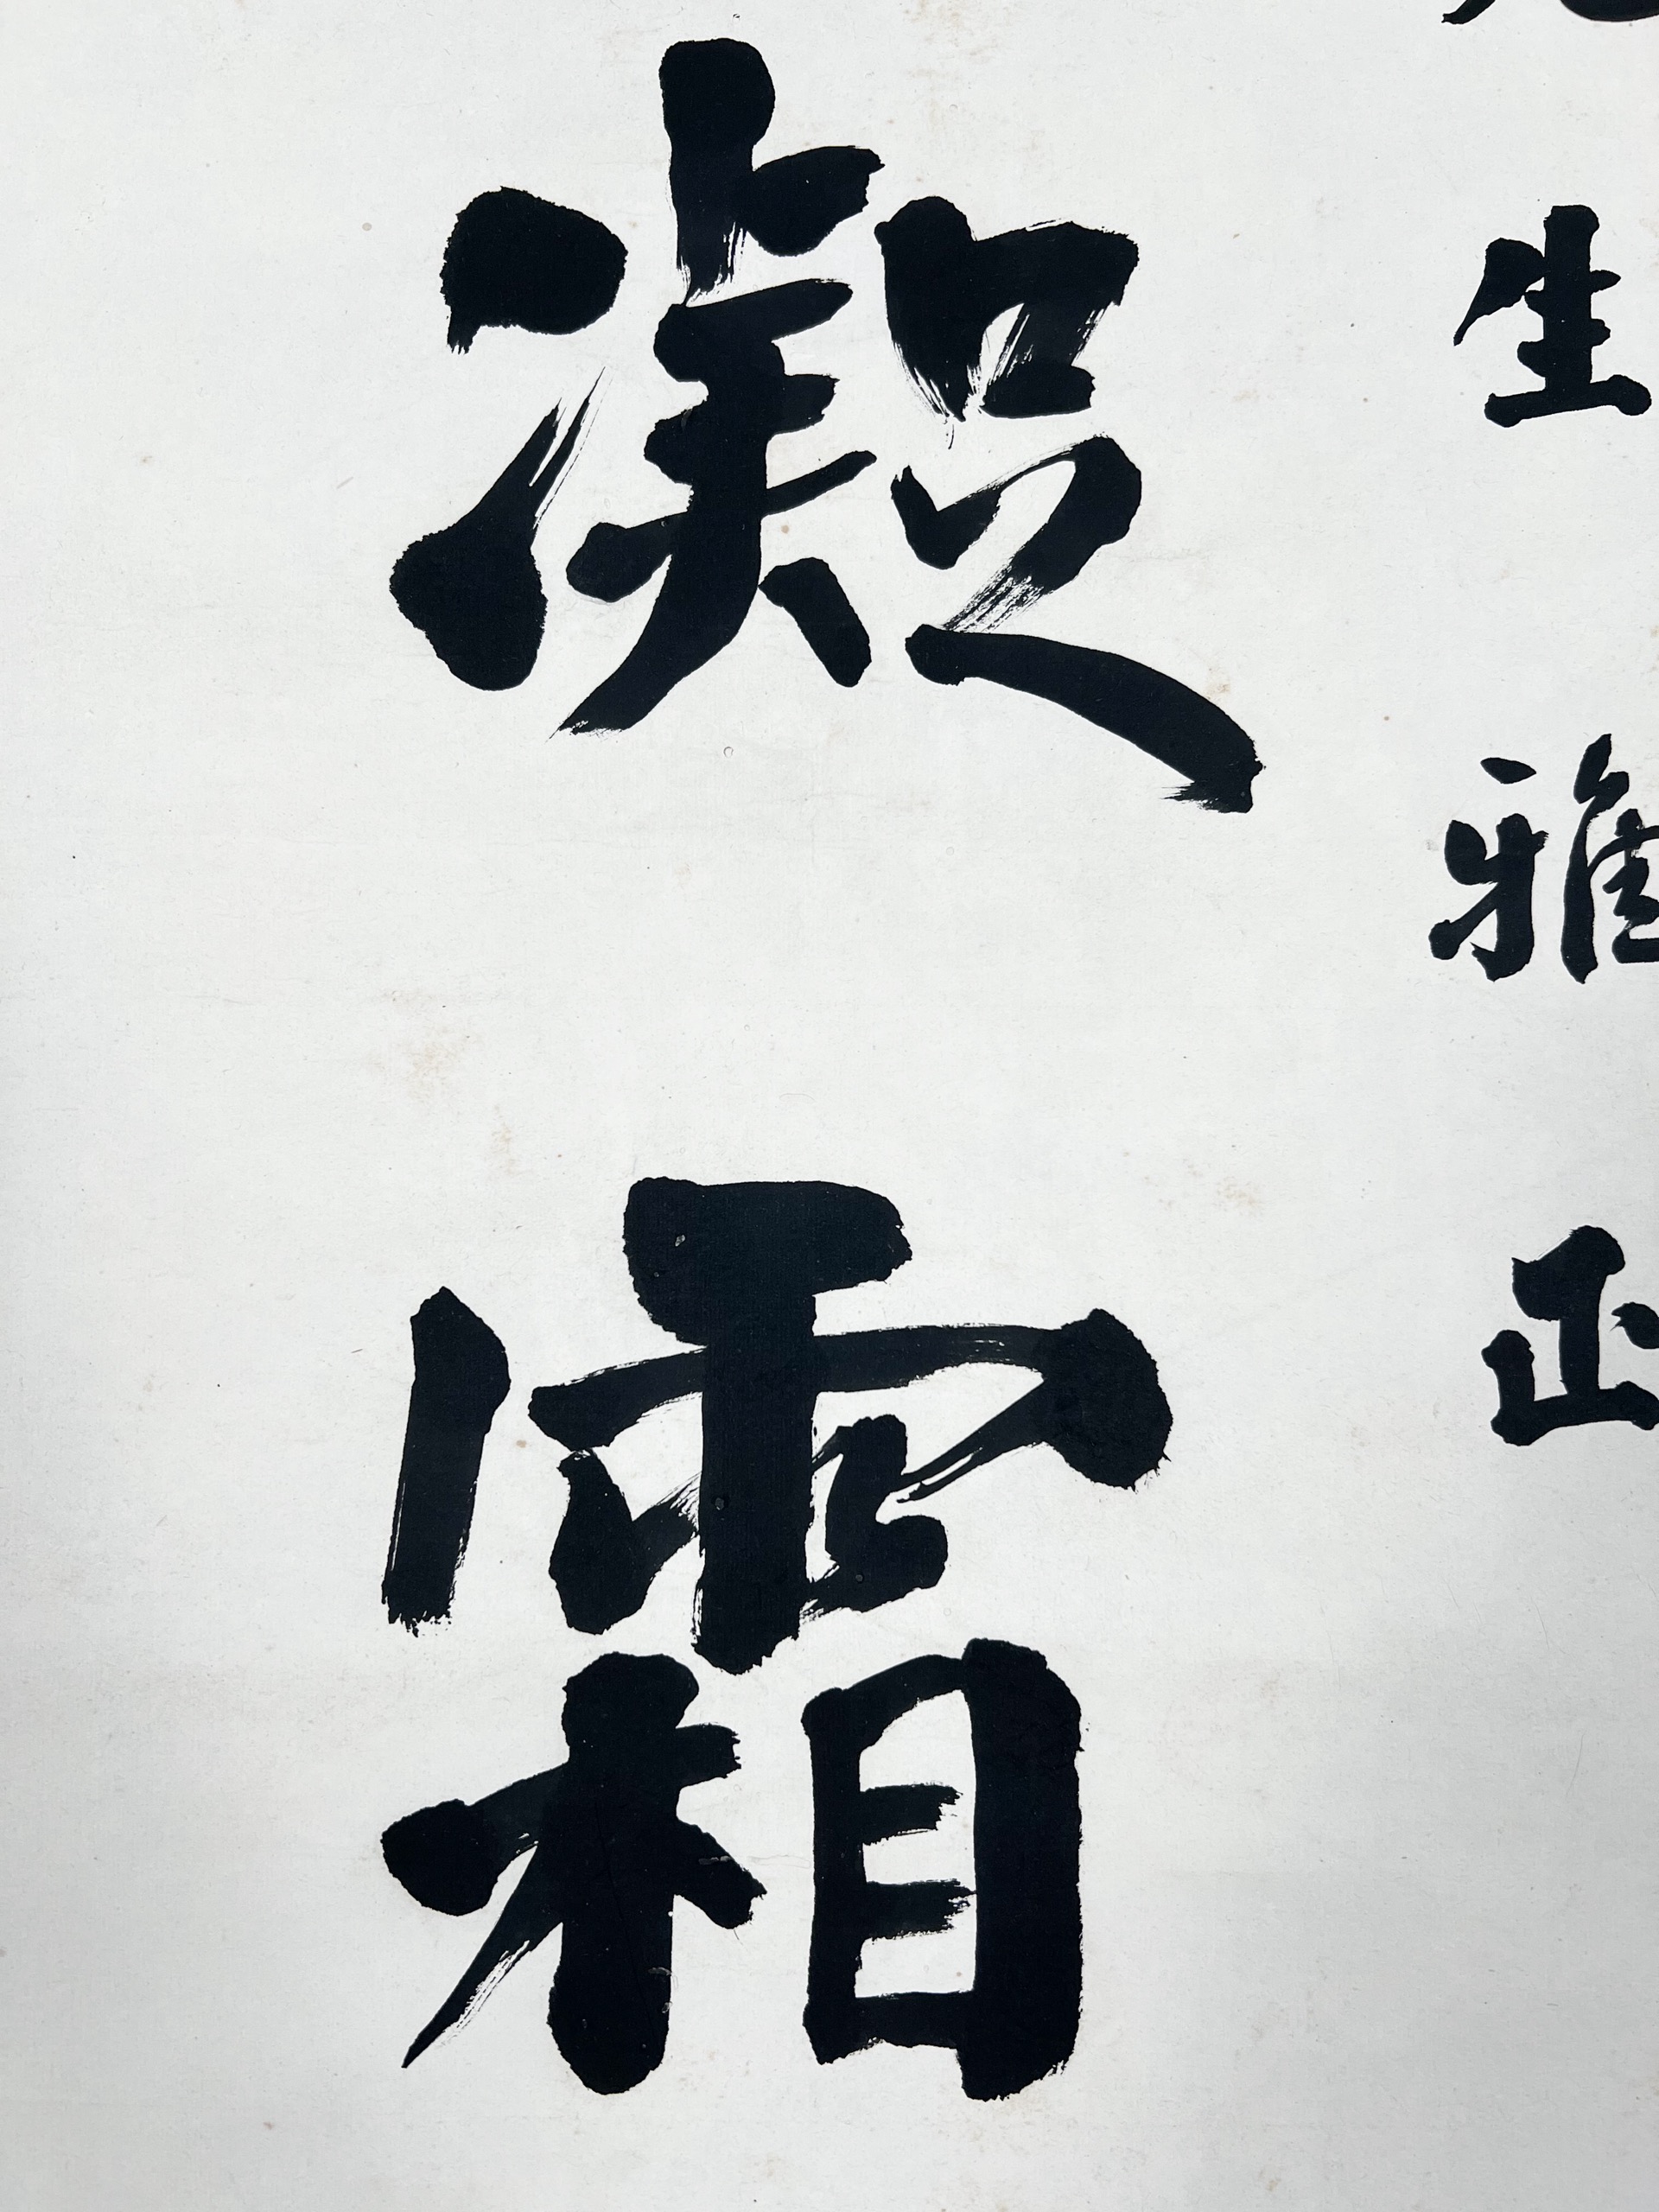 生雅正
凝霜